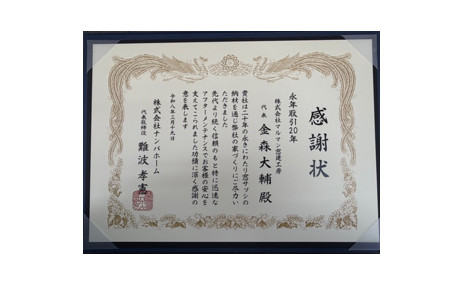 感謝状
永年取引20年
株式会社マルマン窓建工房
代表 金森大輔 殿
貴社は二十年の永きにわたり窓サッシの
納材を通じ弊社の家づくりにご尽力い
ただきました
先代より続く信頼のもと特に迅速な
アフターメンテナンスでお客様の安心を
支えてこられました功績に深く感謝の
意を表します
令和八年三月十九日
株式会社ナンバホーム
代表取締役 難波孝憲